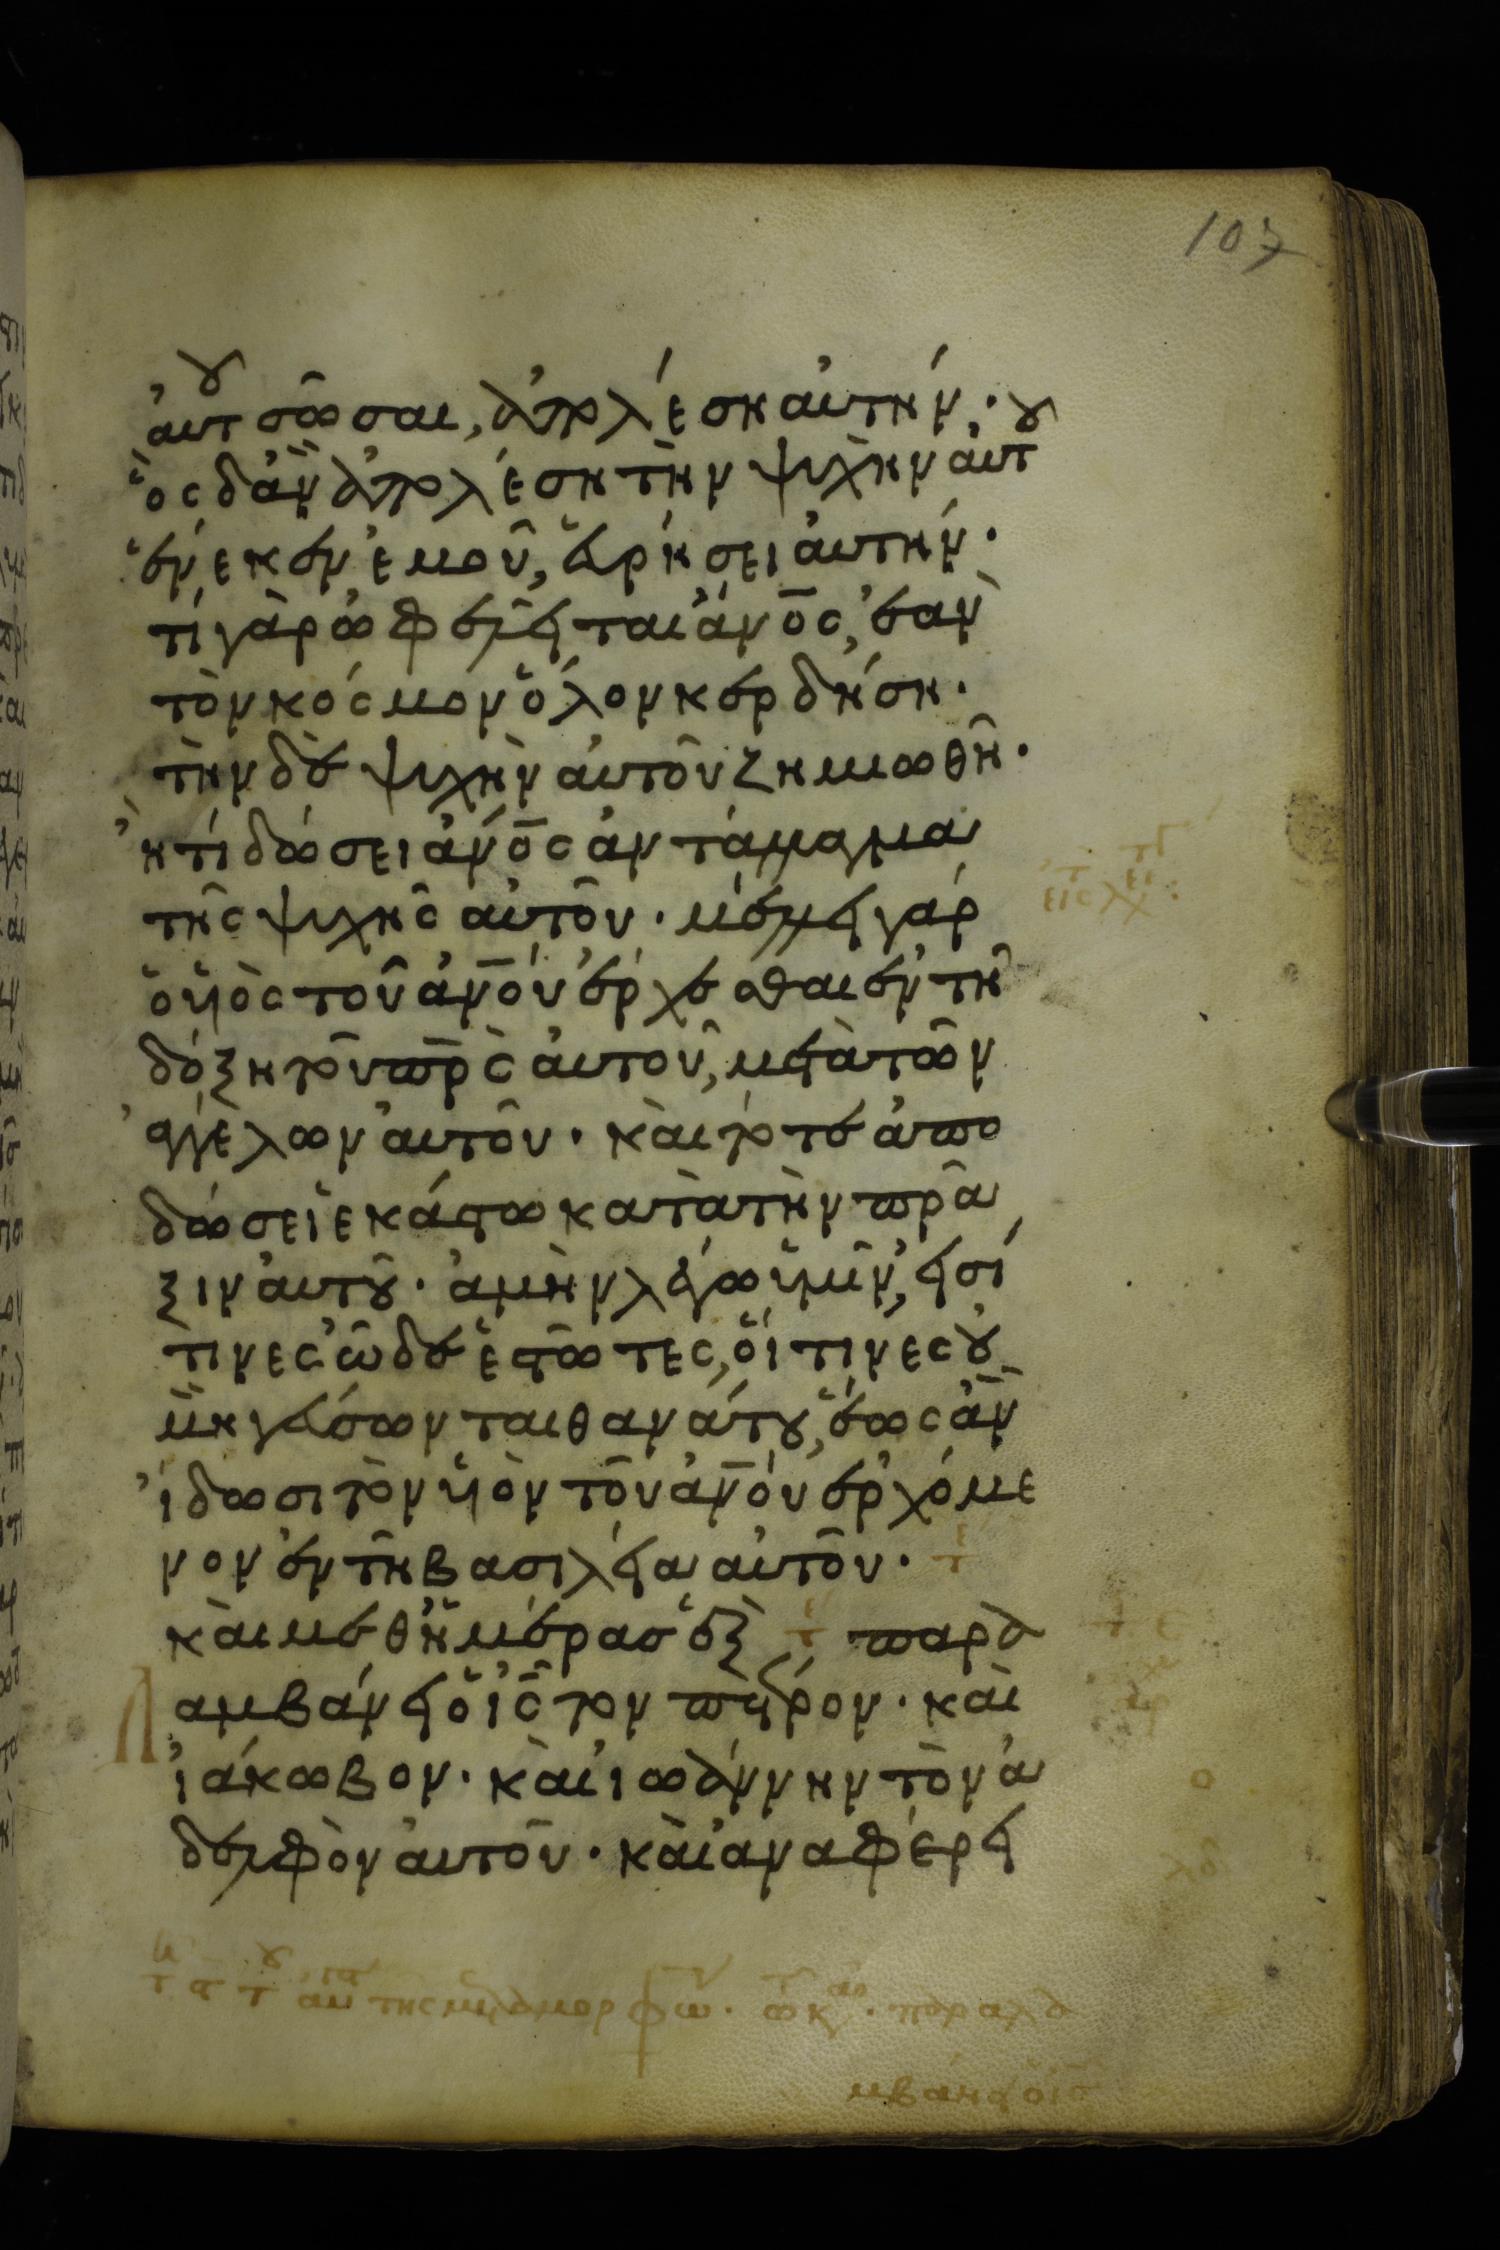 107
ἀυτοῦ σῶσαι, ἀπολέση ἀυτήν·
ὃς δἂν ἀπολέση τὴν ψυχὴν ἀυτοῦ
ἕνεκεν ἐμοῦ, εὑρήσει ἀυτήν·
τί γὰρ ὠφελεῖται ἄνος, ἐὰν
τὸν κόσμον ὅλον κερδήση·
τὴν δὲ ψυχὴν ἀυτοῦ ζημιωθῆ·
ἢ τί δώσει ἄνος ἀντάλλαγμα
τῆς ψυχῆς ἀυτοῦ· μέλλει γάρ
ὁ υἱὸς τοῦ ἀνου ἔρχεσθαι ἐν τῆ
δόξη τοῦ πρς ἀυτοῦ, μετὰ τῶν
ἀγγέλων ἀυτοῦ· καὶ τότε ἀπο
δώσει ἑκάστω κατὰ τὴν πρᾶ
ξιν ἀυτοῦ· ἀμὴν λέγω ὑμῖν, εἰσί
τινες ὧδε ἑστῶτες, οἵτινες οὐ
μὴ γεύσωνται θανάτου, ἕως ἂν
ἴδωσι τὸν υἱὸν τοῦ ἀνου ἐρχόμε
νον ἐν τῆ βασιλεία ἀυτοῦ·
καὶ μεθ ἡμέρας ἓξ παρα
λαμβάνει ὁ ις τον πέτρον· καὶ
ἰάκωβον· καὶ ἰωάννην τὸν ἀ
δελφὸν ἀυτοῦ· καὶ ἀναφέρει